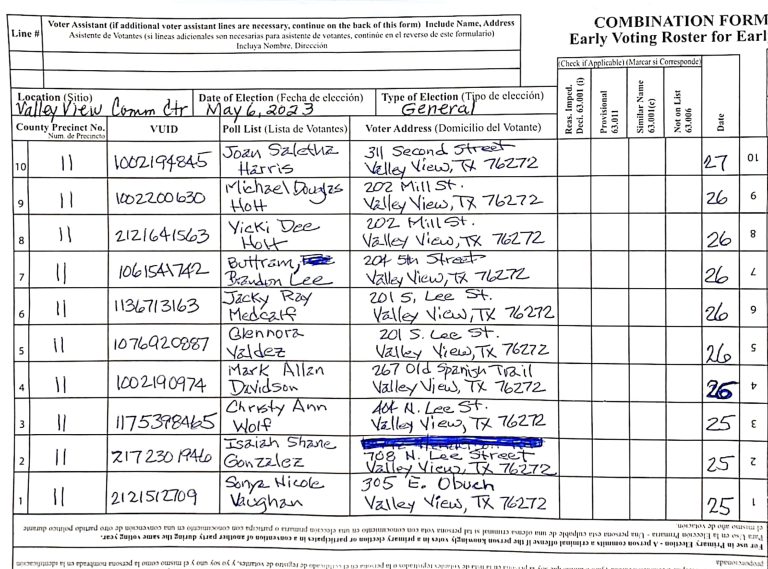 Line #
Voter Assistant (if additional voter assistant lines are necessary, continue on the back of this form) Include Name, Address
Asistente de Votantes (si líneas adicionales son necesarias para asistente de votantes, continúe en el reverso de este formulario)
Incluya Nombre, Dirección
COMBINATION FORM
Early Voting Roster for Earl
(Check if Applicable) (Marcar si Corresponde)
Reas. Imped. Decl. 63.001 (i)
Provisional 63.011
Similar Name 63.001(c)
Not on List 63.006
Date
Location (Sitio) Valley View Comm Ctr
Date of Election (Fecha de elección) May 6, 2023
Type of Election (Tipo de elección) General
County Precinct No. Num. de Precincto
VUID
Poll List (Lista de Votantes)
Voter Address (Domicilio del Votante)
10 11 1002194845 Joan Saletha Harris 311 Second Street Valley View, TX 76272 27 10
9 11 1002200630 Michael Douglas Hott 202 Mill St. Valley View, TX 76272 26 9
8 11 2121641563 Vicki Dee Hott 202 Mill St. Valley View, TX 76272 26 8
7 11 1061541742 Buttram, Brandon Lee 204 5th Street Valley View, TX 76272 26 7
6 11 1136713163 Jacky Ray Medcalf 201 S. Lee St. Valley View, TX 76272 26 6
5 11 1076920887 Glennora Valdez 201 S. Lee St. Valley View, TX 76272 26 5
4 11 1002190974 Mark Allan Davidson 267 Old Spanish Trail Valley View, TX 76272 26 4
3 11 1175398465 Christy Ann Wolf 404 N. Lee St. Valley View, TX 76272 25 3
2 11 2172301946 Isaiah Shane Gonzalez 708 N. Lee Street Valley View, TX 76272 25 2
1 11 2121512709 Sonya Nicole Vaughan 305 E. Obuch Valley View, TX 76272 25 1
el mismo año de votación.
Para Uso en la Elección Primaria - Una persona está culpable de una ofensa criminal si tal persona vota con conocimiento en una elección primaria o participa con conocimiento en una convención de otro partido político durante
For use in Primary Election - A person commits a criminal offense if the person knowingly votes in a primary election or participates in a convention of another party during the same voting year.